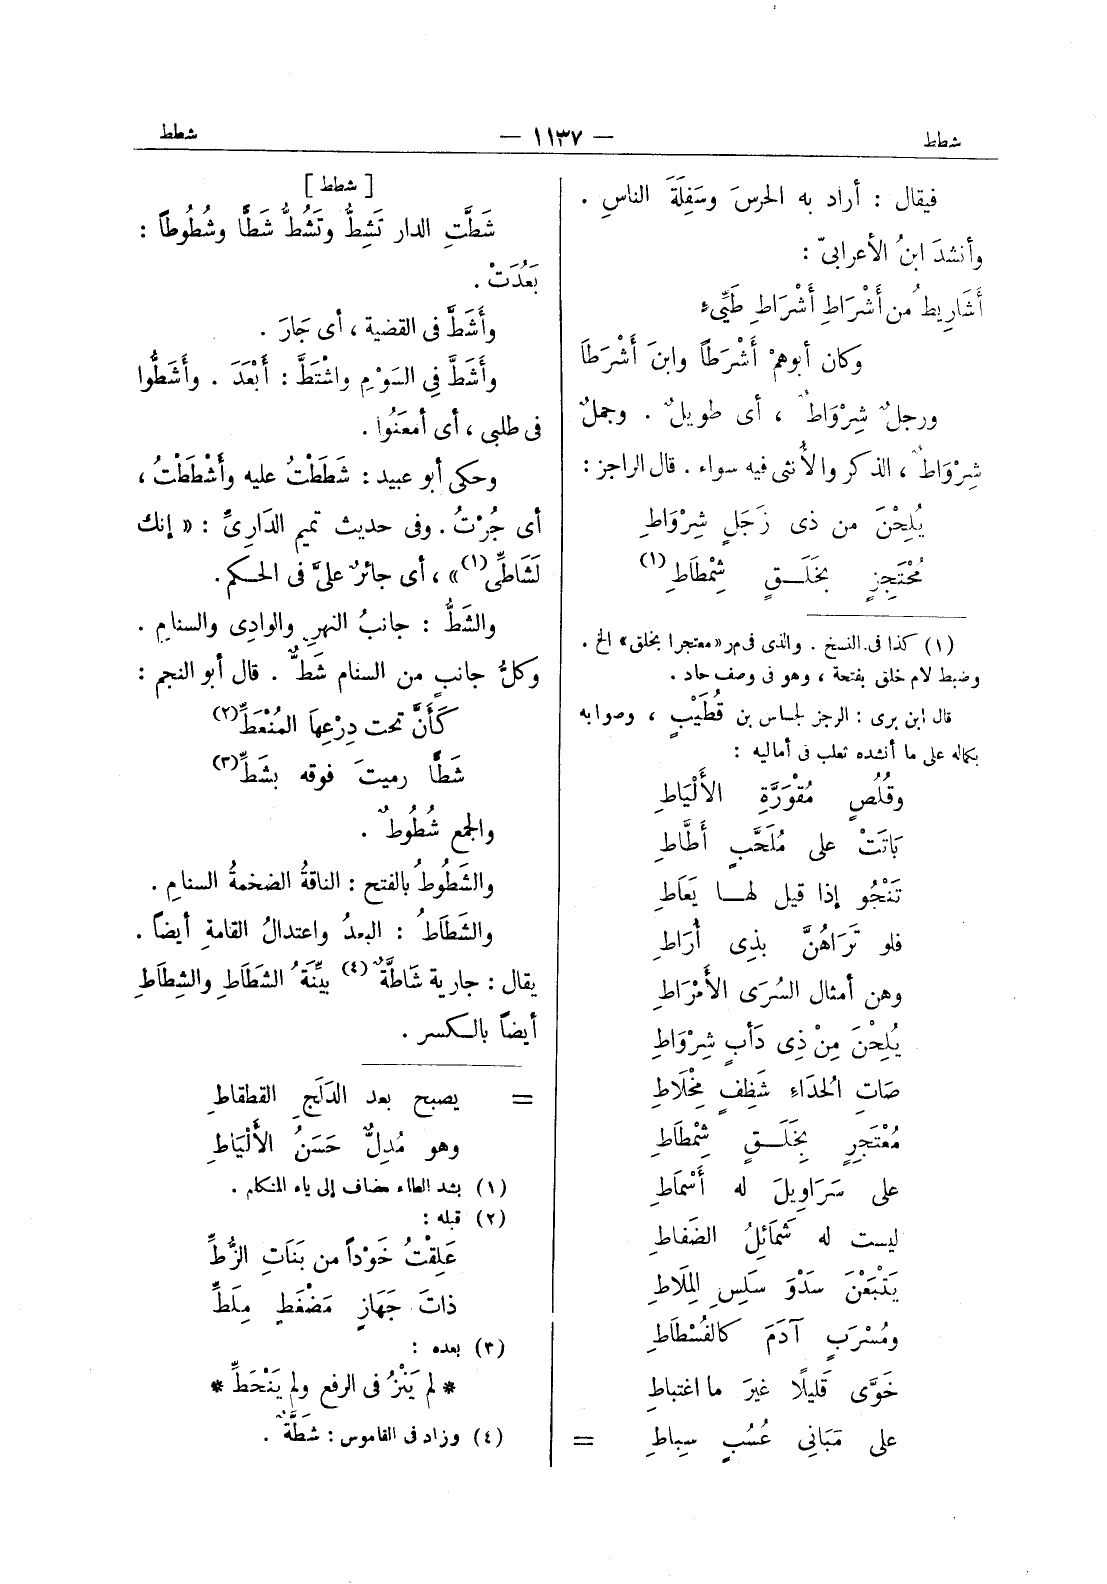 شطط — ١١٣٧ — شطط
فيقال : أراد به الحرسَ وسَفِلَةَ الناسِ .
وأنشدَ ابنُ الأعرابىّ :
أَشَارِيطُ من أَشْرَاطِ أَشْرَاطِ طَيِّىءٍ
وكان أبوهمْ أَشْرَطاً وابنَ أَشْرَطَا
ورجلٌ شِرْوَاطٌ ، أى طويلٌ . وجملٌ
شِرْوَاطٌ ، الذكر والأُنثى فيه سواء . قال الراجز :
يُلِحْنَ من ذى زَجَلٍ شِرْوَاطِ
مُحْتَجِزٍ بخَلَــقٍ شِمْطَاطِ (١)
(١) كذا فى النسخ . والذى فى مر «معتجرا بخلق» الخ .
وضبط لام خلق بفتحة ، وهو فى وصف حاد .
قال ابن برى : الرجز لجساس بن قُطَيْبٍ ، وصوابه
بكماله على ما أنشده ثعلب فى أماليه :
وقُلُصٍ مُقْوَرَّةِ الأَلْيَاطِ
بَاتَتْ على مُلَحَّبٍ أَطَّاطِ
تَنْجُو إذا قيل لهــا يَعَاطِ
فلو تَرَاهُنَّ بذِى أُرَاطِ
وهن أمثال السُرَى الأَمْرَاطِ
يُلِحْنَ مِنْ ذِى دَأبٍ شِرْوَاطِ
صَاتِ الْحُدَاءِ شَظِفٍ مِخْلَاطِ
مُعْتَجِرٍ بِخَلَــقٍ شِمْطَاطِ
على سَرَاوِيلَ له أَسْمَاطِ
ليست له شَمَائِلُ الضَفاطِ
يَتْبَعْنَ سَدْوَ سَلِسِ الْمِلَاطِ
ومُسْرَبٍ آدَمَ كالفُسْطَاطِ
خَوَّى قَليلًا غيرَ ما اغتباطِ
على مَبَانِى عُسُبٍ سِباطِ =
[ شطط ]
شَطَّتِ الدار تَشِطُّ وتَشُطُّ شَطًّا وشُطُوطاً :
بَعُدَتْ .
وأَشَطَّ فى القضية ، أى جَارَ .
وأَشَطَّ فِى السَوْمِ واشْتَطَّ : أَبْعَدَ . وأَشَطُّوا
فى طلبى ، أى أمعَنُوا .
وحكى أبو عبيد : شَطَطْتُ عليه وأَشْطَطْتُ ،
أى جُرْتُ . وفى حديث تميم الدَارِىِّ : « إنك
لَشَاطِّى (١) » ، أى جائرٌ علىَّ فى الحــكم .
والشَطُّ : جانبُ النهرِ والوادِى والسنامِ .
وكلُّ جانبٍ من السنام شَطٌّ . قال أبو النجم :
كَأَنَّ تحت دِرْعِهاَ المُنْعَطِّ (٢)
شَطًّا رميتَ فوقه بشَطِّ (٣)
والجمع شُطُوطٌ .
والشَطُوطُ بالفتح : الناقةُ الضخمةُ السنامِ .
والشَطَاطُ : البعدُ واعتدالُ القامةِ أيضاً .
يقال : جارية شَاطَّةٌ (٤) بيِّنَةُ الشَطَاطِ والشِطَاطِ
أيضاً بالــكسر .
= يصبح بعد الدَلَجِ القطقاطِ
وهو مُدِلٌّ حَسَنُ الأَلْيَاطِ
(١) بشد الطاء مضاف إلى ياء المتكلم .
(٢) قبله :
عَلِقْتُ خَوْداً من بَنَاتِ الزُّطِّ
ذاتَ جَهَازٍ مَضْغَطٍ مِلَطِّ
(٣) بعده :
* لم يَنْزُ فى الرفع ولم يَنْحَطِّ *
(٤) وزاد فى القاموس : شَطَّةٌ .